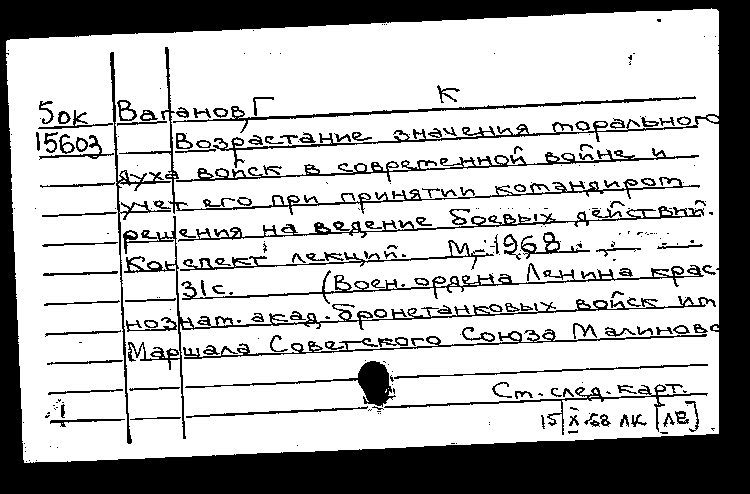 К
5ок Ваганов, Г
15603 Возрастание значения морального
духа войск в современной войне и
учет его при принятии командиром
решения на ведение боевых действий.
Конспект лекций. М., 1968.
31с. (Воен. ордена Ленина крас-
нознам. акад. бронетанковых войск им
Маршала Советского Союза Малиновс
Ст. след. карт.
15/X-68 ЛК [ЛВ]